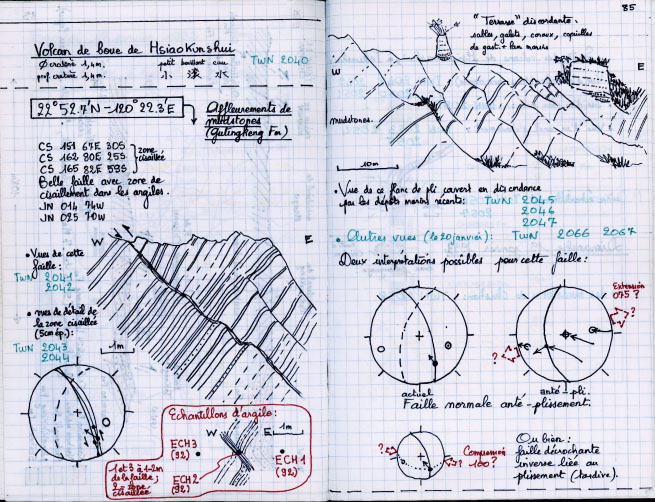 Volcan de boue de Hsiaokunshui
Ø cratère 1,4m.
petit bouillant eau
TWN 2040
prof cratère 1,4m.
小 滾 水
22°52.7'N - 120°22.3'E
Affleurements de
mudstones
(Gutingkeng Fm)
CS 151 67E 30S
CS 162 80E 25S
CS 165 82E 59S
zone
cisaillée
Belle faille avec zone de
cisaillement dans les argiles.
JN 014 74W
JN 025 70W
• Vues de cette
faille :
TWN 2041
2042
• vues de détail de
la zone cisaillée
(5cm ép.):
TWN 2043
2044
W
E
1m
Echantillons d'argile :
W
E
1m
ECH3
(92)
ECH1
(92)
ECH2
(92)
1 et 3 à 1-2m
de la faille ;
2 = zone
cisaillée
85
"Terrasse" discordante :
sables, galets, coraux, coquilles
de gast. + lam marins
W
E
mudstones.
10m
• Vue de ce flanc de pli couvert en discordance
par les dépôts marins récents : TWN 2045
2046
2047
• Autres vues (le 20 janvier) : TWN 2066 2067
Deux interprétations possibles pour cette faille :
Extension
075 ?
?
?
actuel
anté-pli.
Faille normale anté-plissement.
?
?
Compression
100 ?
Ou bien :
faille décrochante
inverse liée au
plissement (tardive).